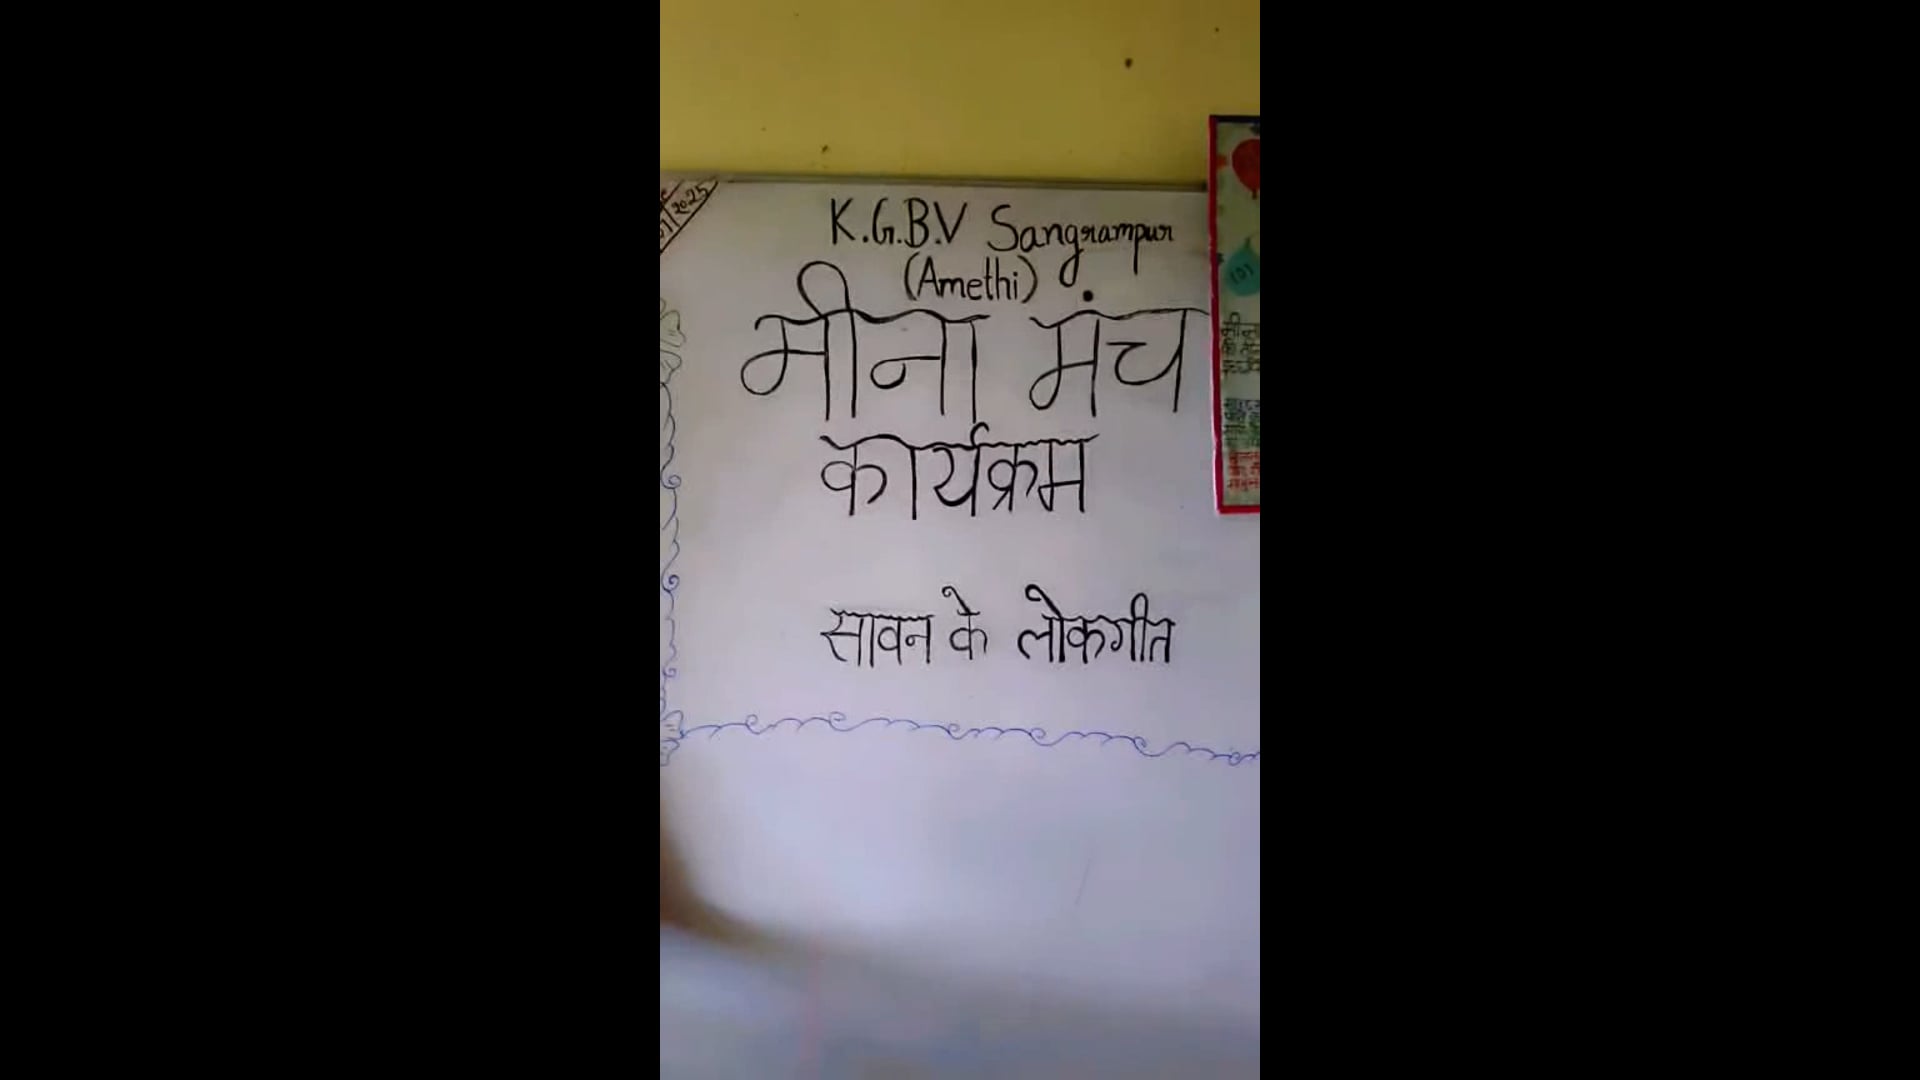 2025
K.G.B.V Sangrampur
(Amethi)
मीना मंच
कार्यक्रम
सावन के लोकगीत